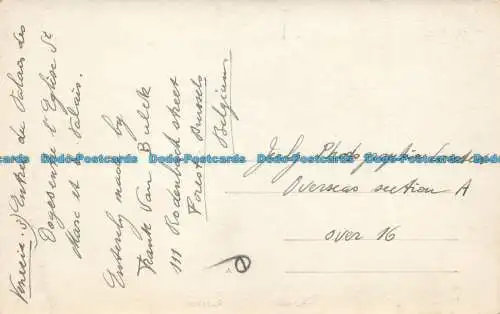 Venezia. 3) Entrée du Palais des
Doges entre l'Eglise St
Marc et le Palais.
Entirely made by
Frank Van Bulck
111 Rodenbach street
Forest Brussels
Belgium
July Photographic
Overseas section A
over 16
Dodo-Postcards Dodo-Postcards Dodo-Postcards Dodo-Postcards Dodo-Postcards Dodo-Postcards